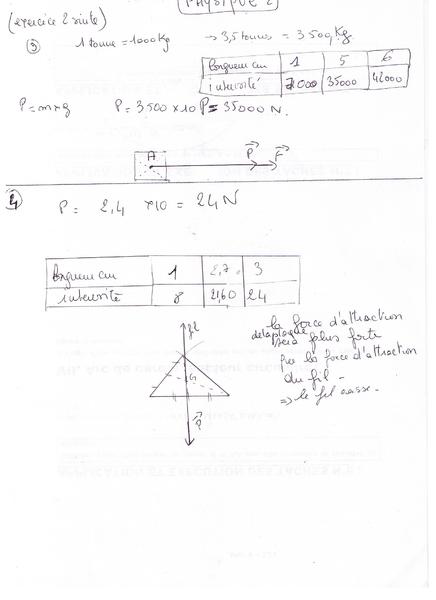 PHYSIQUE 2
(exercice 2 suite)
③ 1 tonne = 1000 Kg → 3,5 tonnes = 3 500 Kg
longueur cm 1 5 6
intensité 7000 35000 42000
P = m × g P = 3 500 × 10 P = 35000 N.
A P F
4 P = 2,4 × 10 = 24 N
longueur cm 1 2,7 3
intensité 8 21,60 24
fil
G
P
la force d'attraction
de la plaque
sera plus forte
que la force d'attraction
du fil -
=> le fil casse.